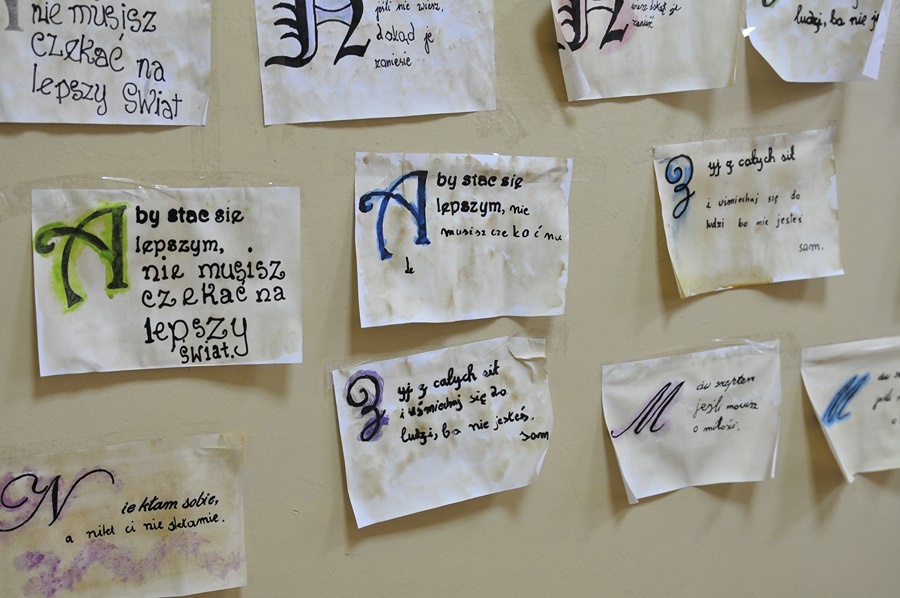 nie musisz
czekać na
lepszy świat
jeśli nie wiesz,
dokąd je
zaniesie
wiesz dokąd je
ludzi, bo nie j
Aby stac się
lepszym,
nie musisz
czekać na
lepszy
świat.
Aby stac się
lepszym, nie
musisz cze ko ć na
le
Żyj z całych sił
i uśmiechaj się do
ludzi bo nie jesteś
sam.
Żyj z całych sił
i uśmiechaj się do
ludzi, bo nie jesteś.
sam
Mów szeptem
jeśli mówisz
o miłości.
M
Nie kłam sobie,
a nikt ci nie skłamie.